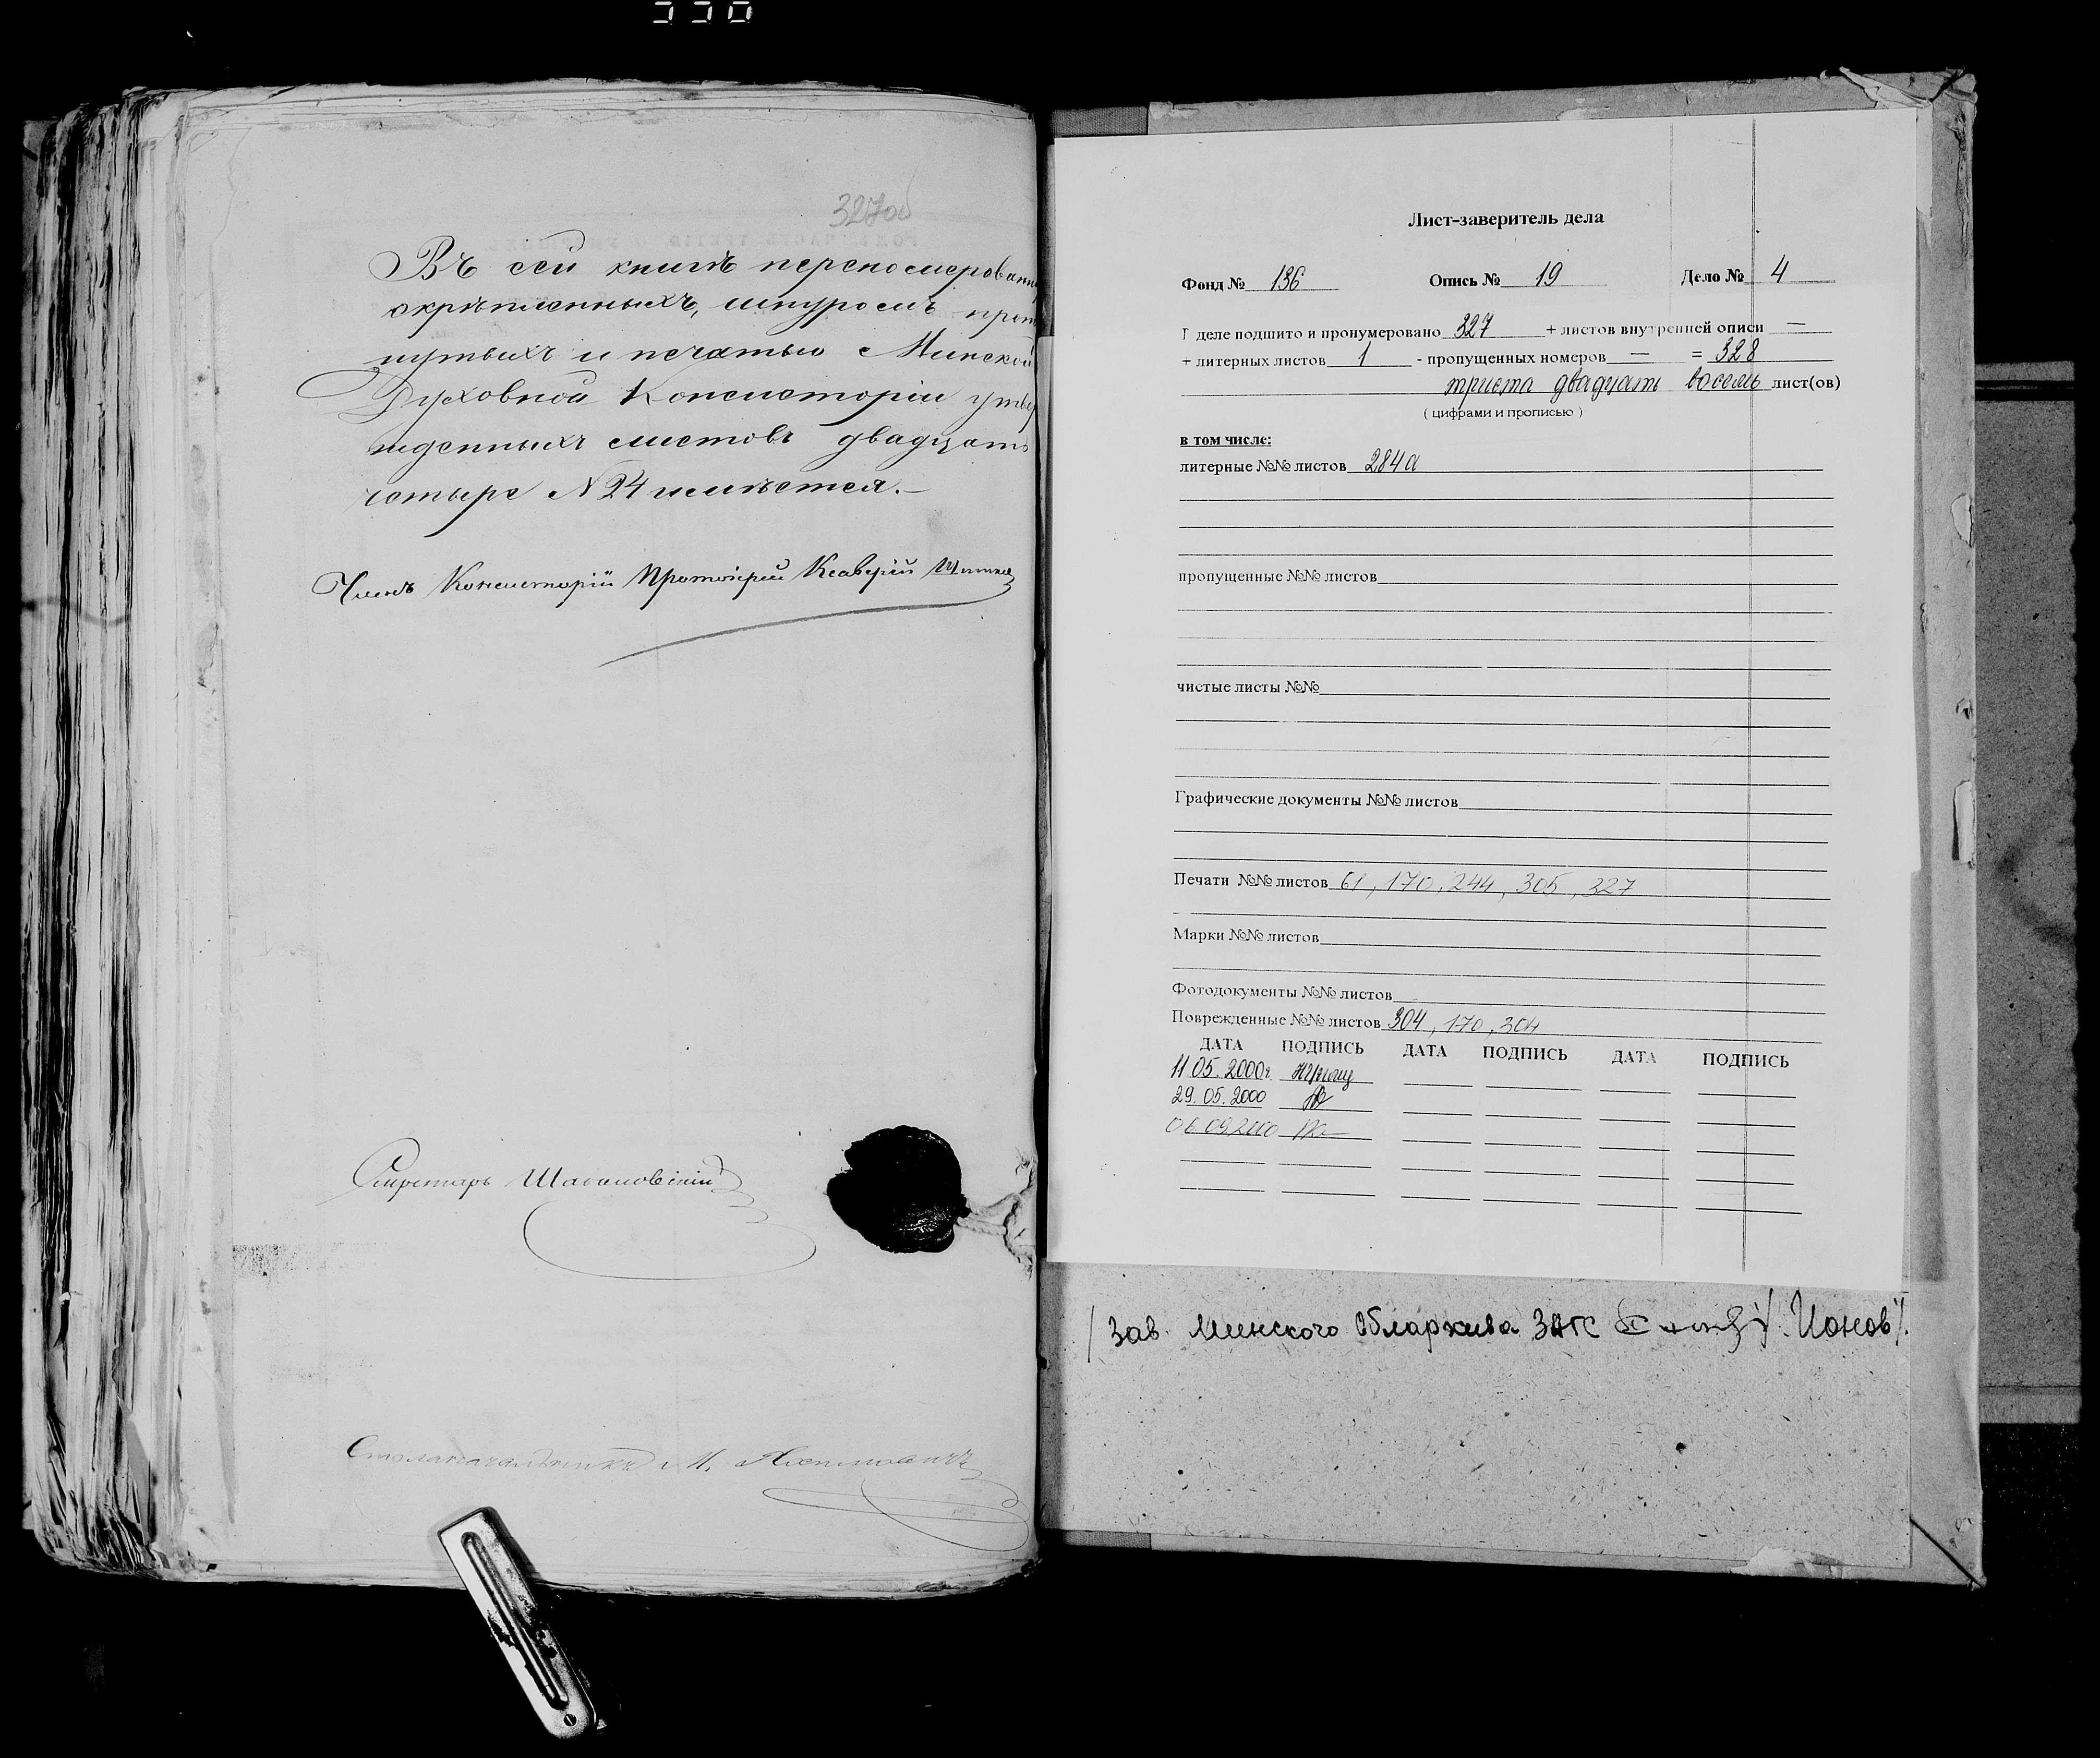 327об
Въ сей книгѣ переномерован
скрѣпленныхъ, шнуромъ прот
нутыхъ и печатью Минской
Духовной Консисторіи утвер
жденныхъ листовъ двадцать
четыре N 24 имѣется.—
Членъ Консисторіи Протоіерей Ксаверій
Секретарь
Столоначальникъ М.
Лист-заверитель дела
Фонд № 136 Опись № 19 Дело № 4
деле подшито и пронумеровано 327 + листов внутренней описи —
+ литерных листов 1 - пропущенных номеров — = 328
триста двадцать восемь лист(ов)
( цифрами и прописью )
в том числе:
литерные №№ листов 284а
пропущенные №№ листов
чистые листы №№
Графические документы №№ листов
Печати №№ листов 61, 170, 244, 305, 327
Марки №№ листов
Фотодокументы №№ листов
Поврежденные №№ листов 304, 170, 304
ДАТА ПОДПИСЬ ДАТА ПОДПИСЬ ДАТА ПОДПИСЬ
11.05.2000г.
29.05.2000
06.09.2000
/ Зав. Минского Облархива ЗАГС /Ионов/.